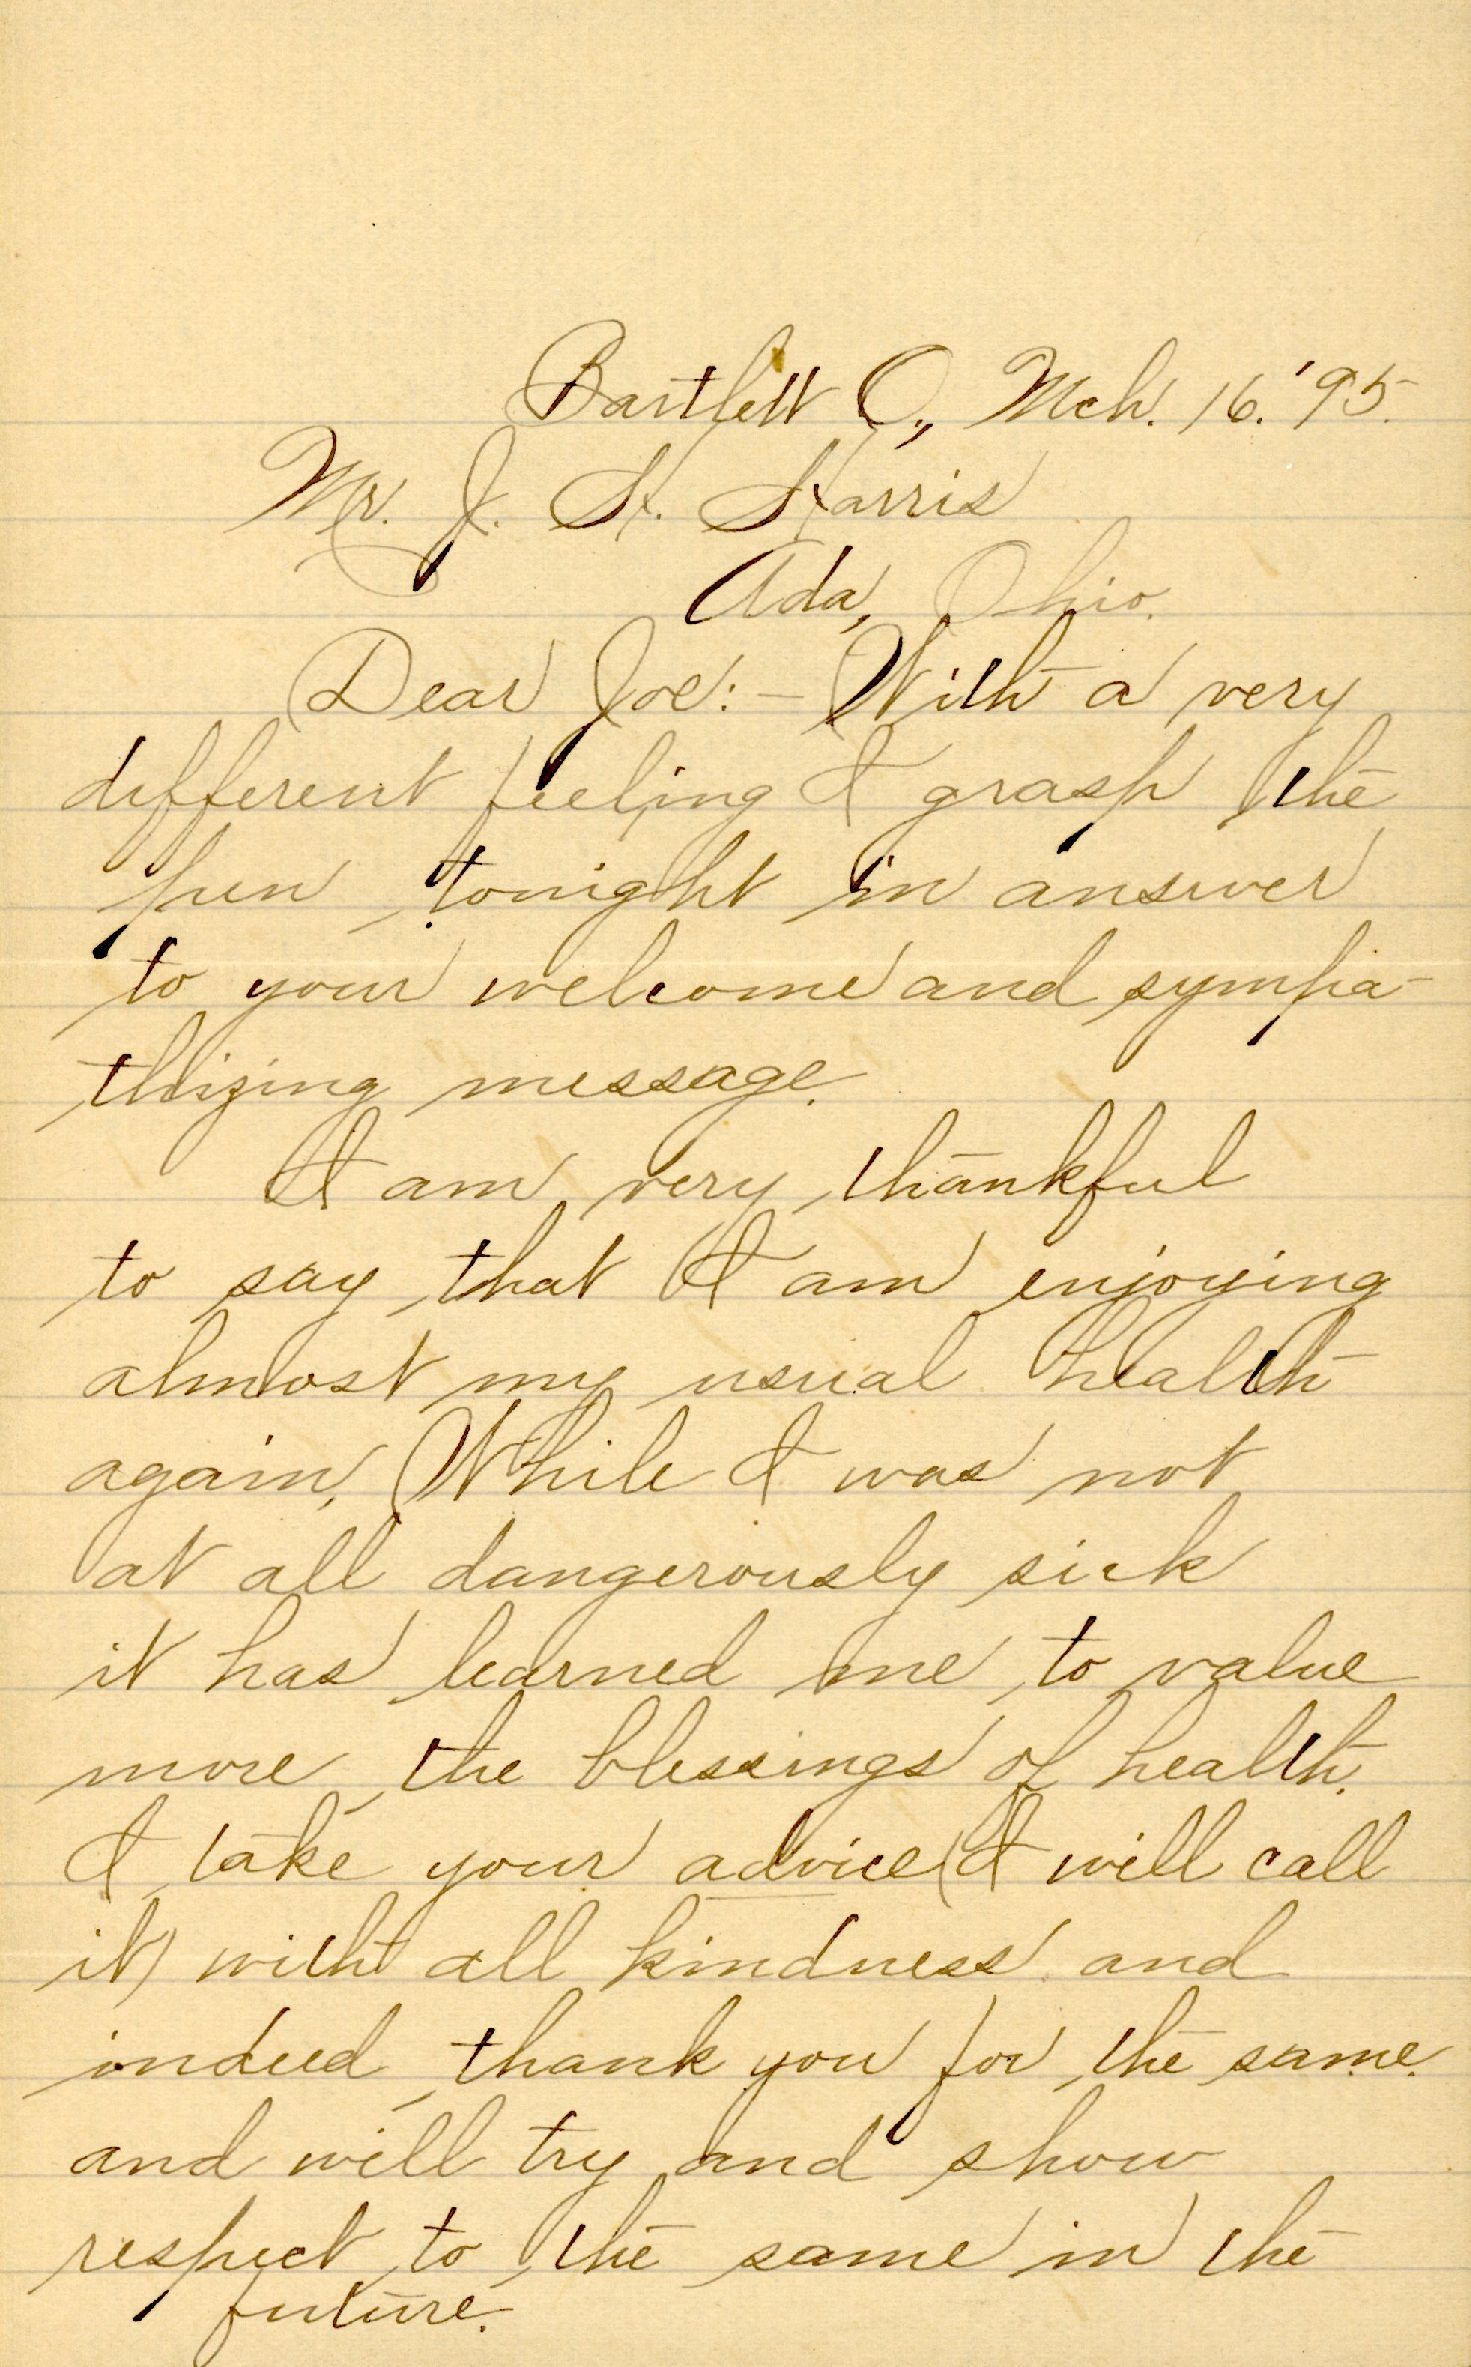 Bartlett O., Mch. 16. '95.
Mr. J. H. Harris
Ada, Ohio.
Dear Joe: – With a very
different feeling I grasp the
pen tonight in answer
to your welcome and sympa-
thizing message.
I am very thankful
to say that I am enjoying
almost my usual health
again. While I was not
at all dangerously sick
it has learned me to value
more the blessings of health.
I take your advice (I will call
it) with all kindness and
indeed thank you for the same.
and will try and show
respect to the same in the
future.